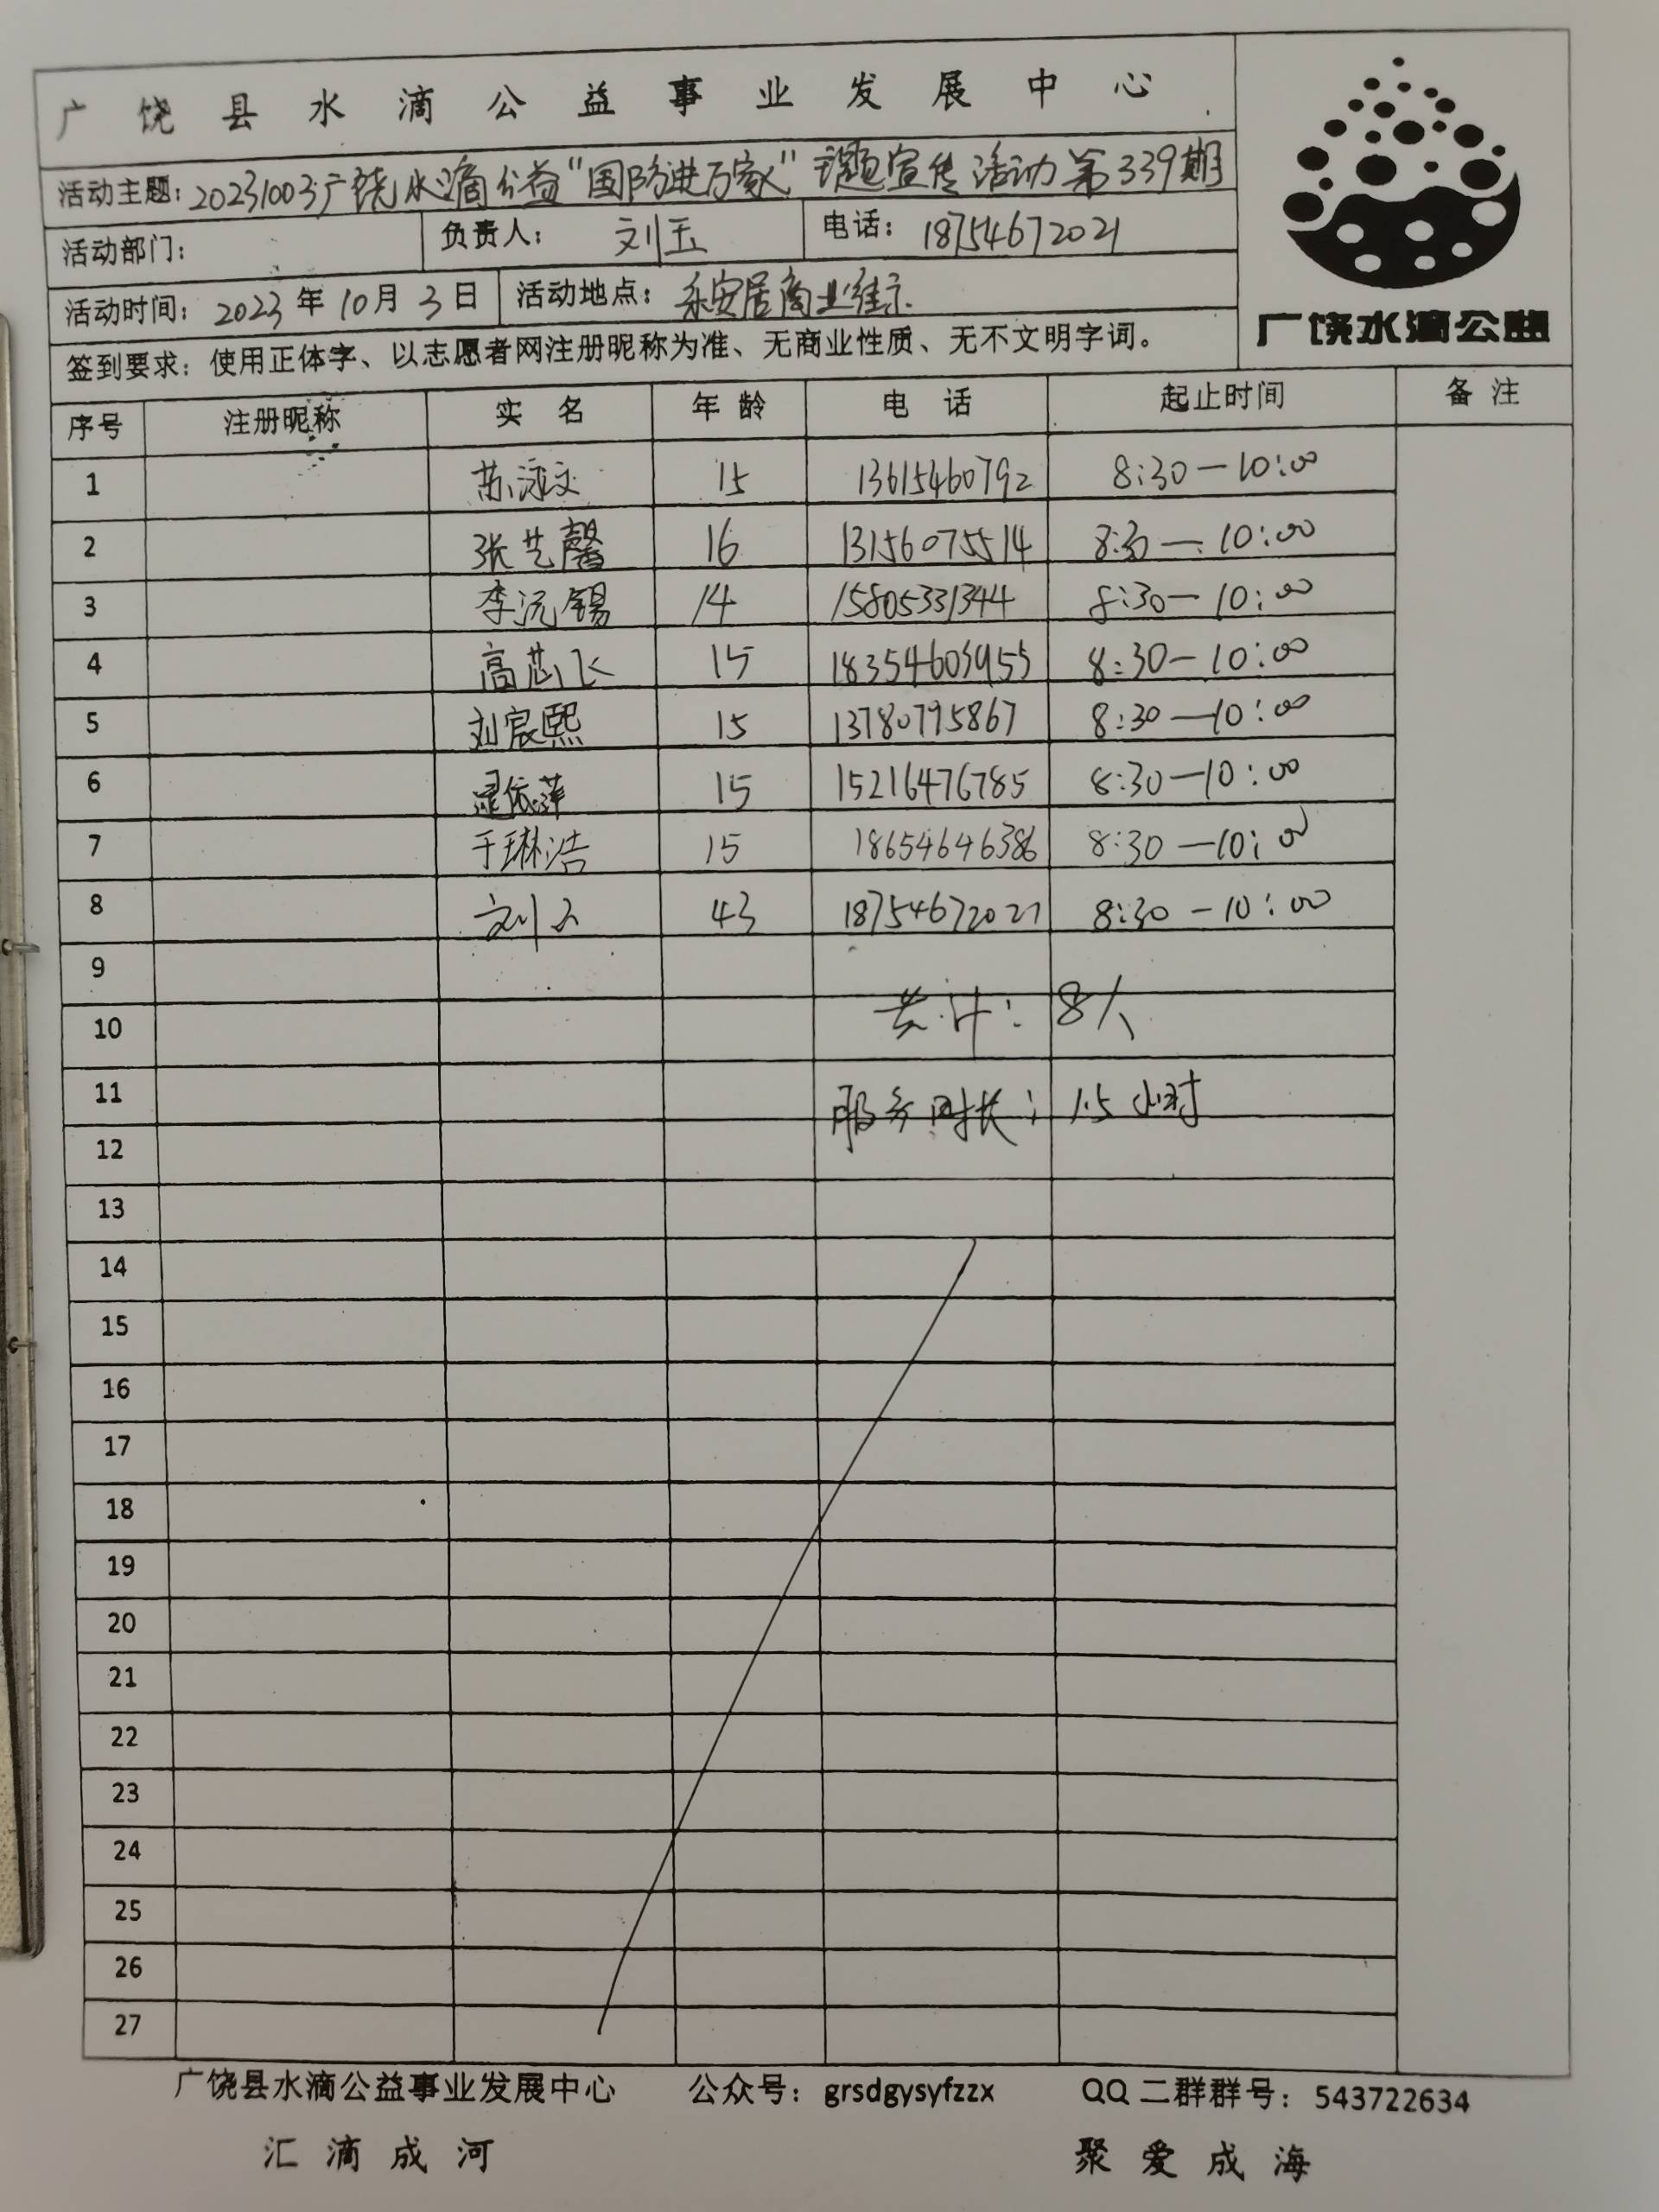 广饶县水滴公益事业发展中心
活动主题：20231003广饶水滴公益“国防进万家”主题宣传活动第339期
活动部门： 负责人：刘玉 电话：18754672021
活动时间：2023年10月3日 活动地点：乐安居商业街
广饶水滴公益
签到要求：使用正体字、以志愿者网注册昵称为准、无商业性质、无不文明字词。
序号 注册昵称 实名 年龄 电话 起止时间 备注
1 苏泳文 15 13615460792 8:30—10:00
2 张艺馨 16 13156075514 8:30—10:00
3 李沅锡 14 15805331344 8:30—10:00
4 高芯飞 15 18354603955 8:30—10:00
5 刘宸熙 15 13780795867 8:30—10:00
6 依萍 15 15216476785 8:30—10:00
7 于琳浩 15 18654646386 8:30—10:00
8 刘玉 43 18754672021 8:30—10:00
9
共计：8人
10
11
服务时长：1.5小时
12
13
14
15
16
17
18
19
20
21
22
23
24
25
26
27
广饶县水滴公益事业发展中心 公众号：grsdgysyfzzx QQ二群群号：543722634
汇滴成河 聚爱成海